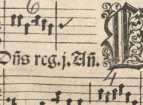 6
Dñs reg.j. Añ.
4